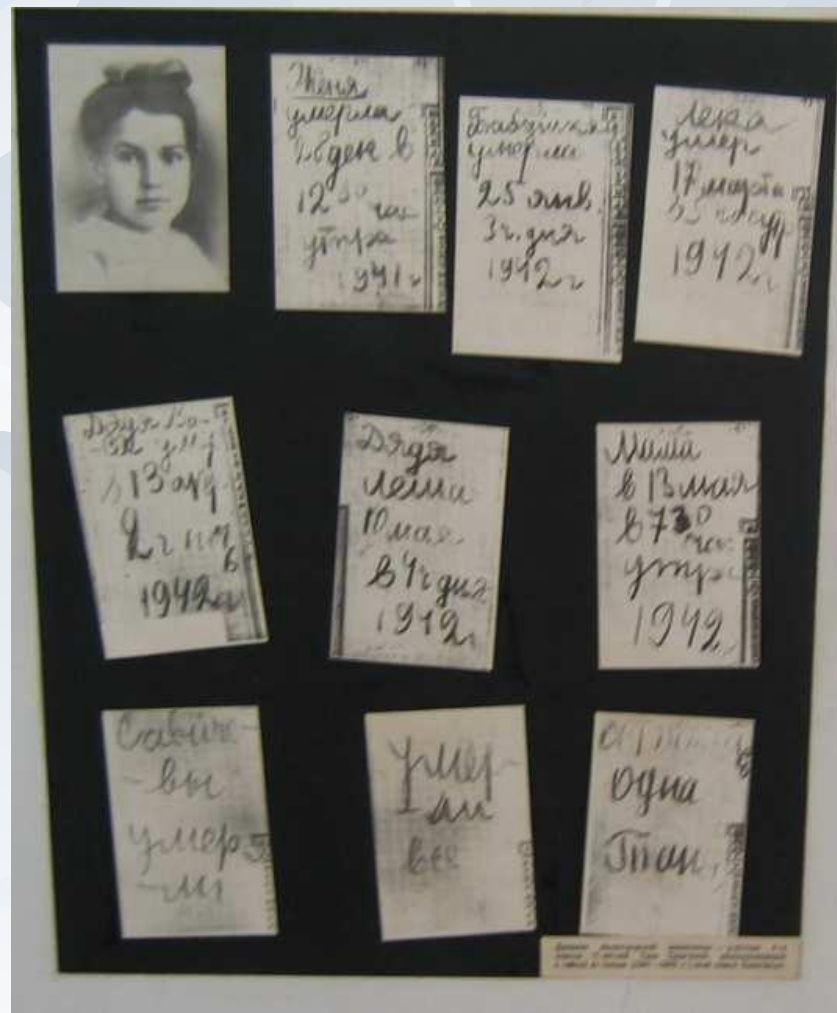 Женя
умерла
28 дек в
12 00 час
утра
1941 г
Бабушка
умерла
25 янв.
3 ч. дня
1942 г
Лека
умер
17 марта
1942 г
Дядя Ва-
13 апр
2 ч ноч
1942 г
Дядя
Леша
10 мая
в 4 ч дня
1942 г
Мама
в 13 мая
в 7 30
час
утра
1942
Савиче-
-вы
умер
-ли
умер-
-ли
все
одна
Таня